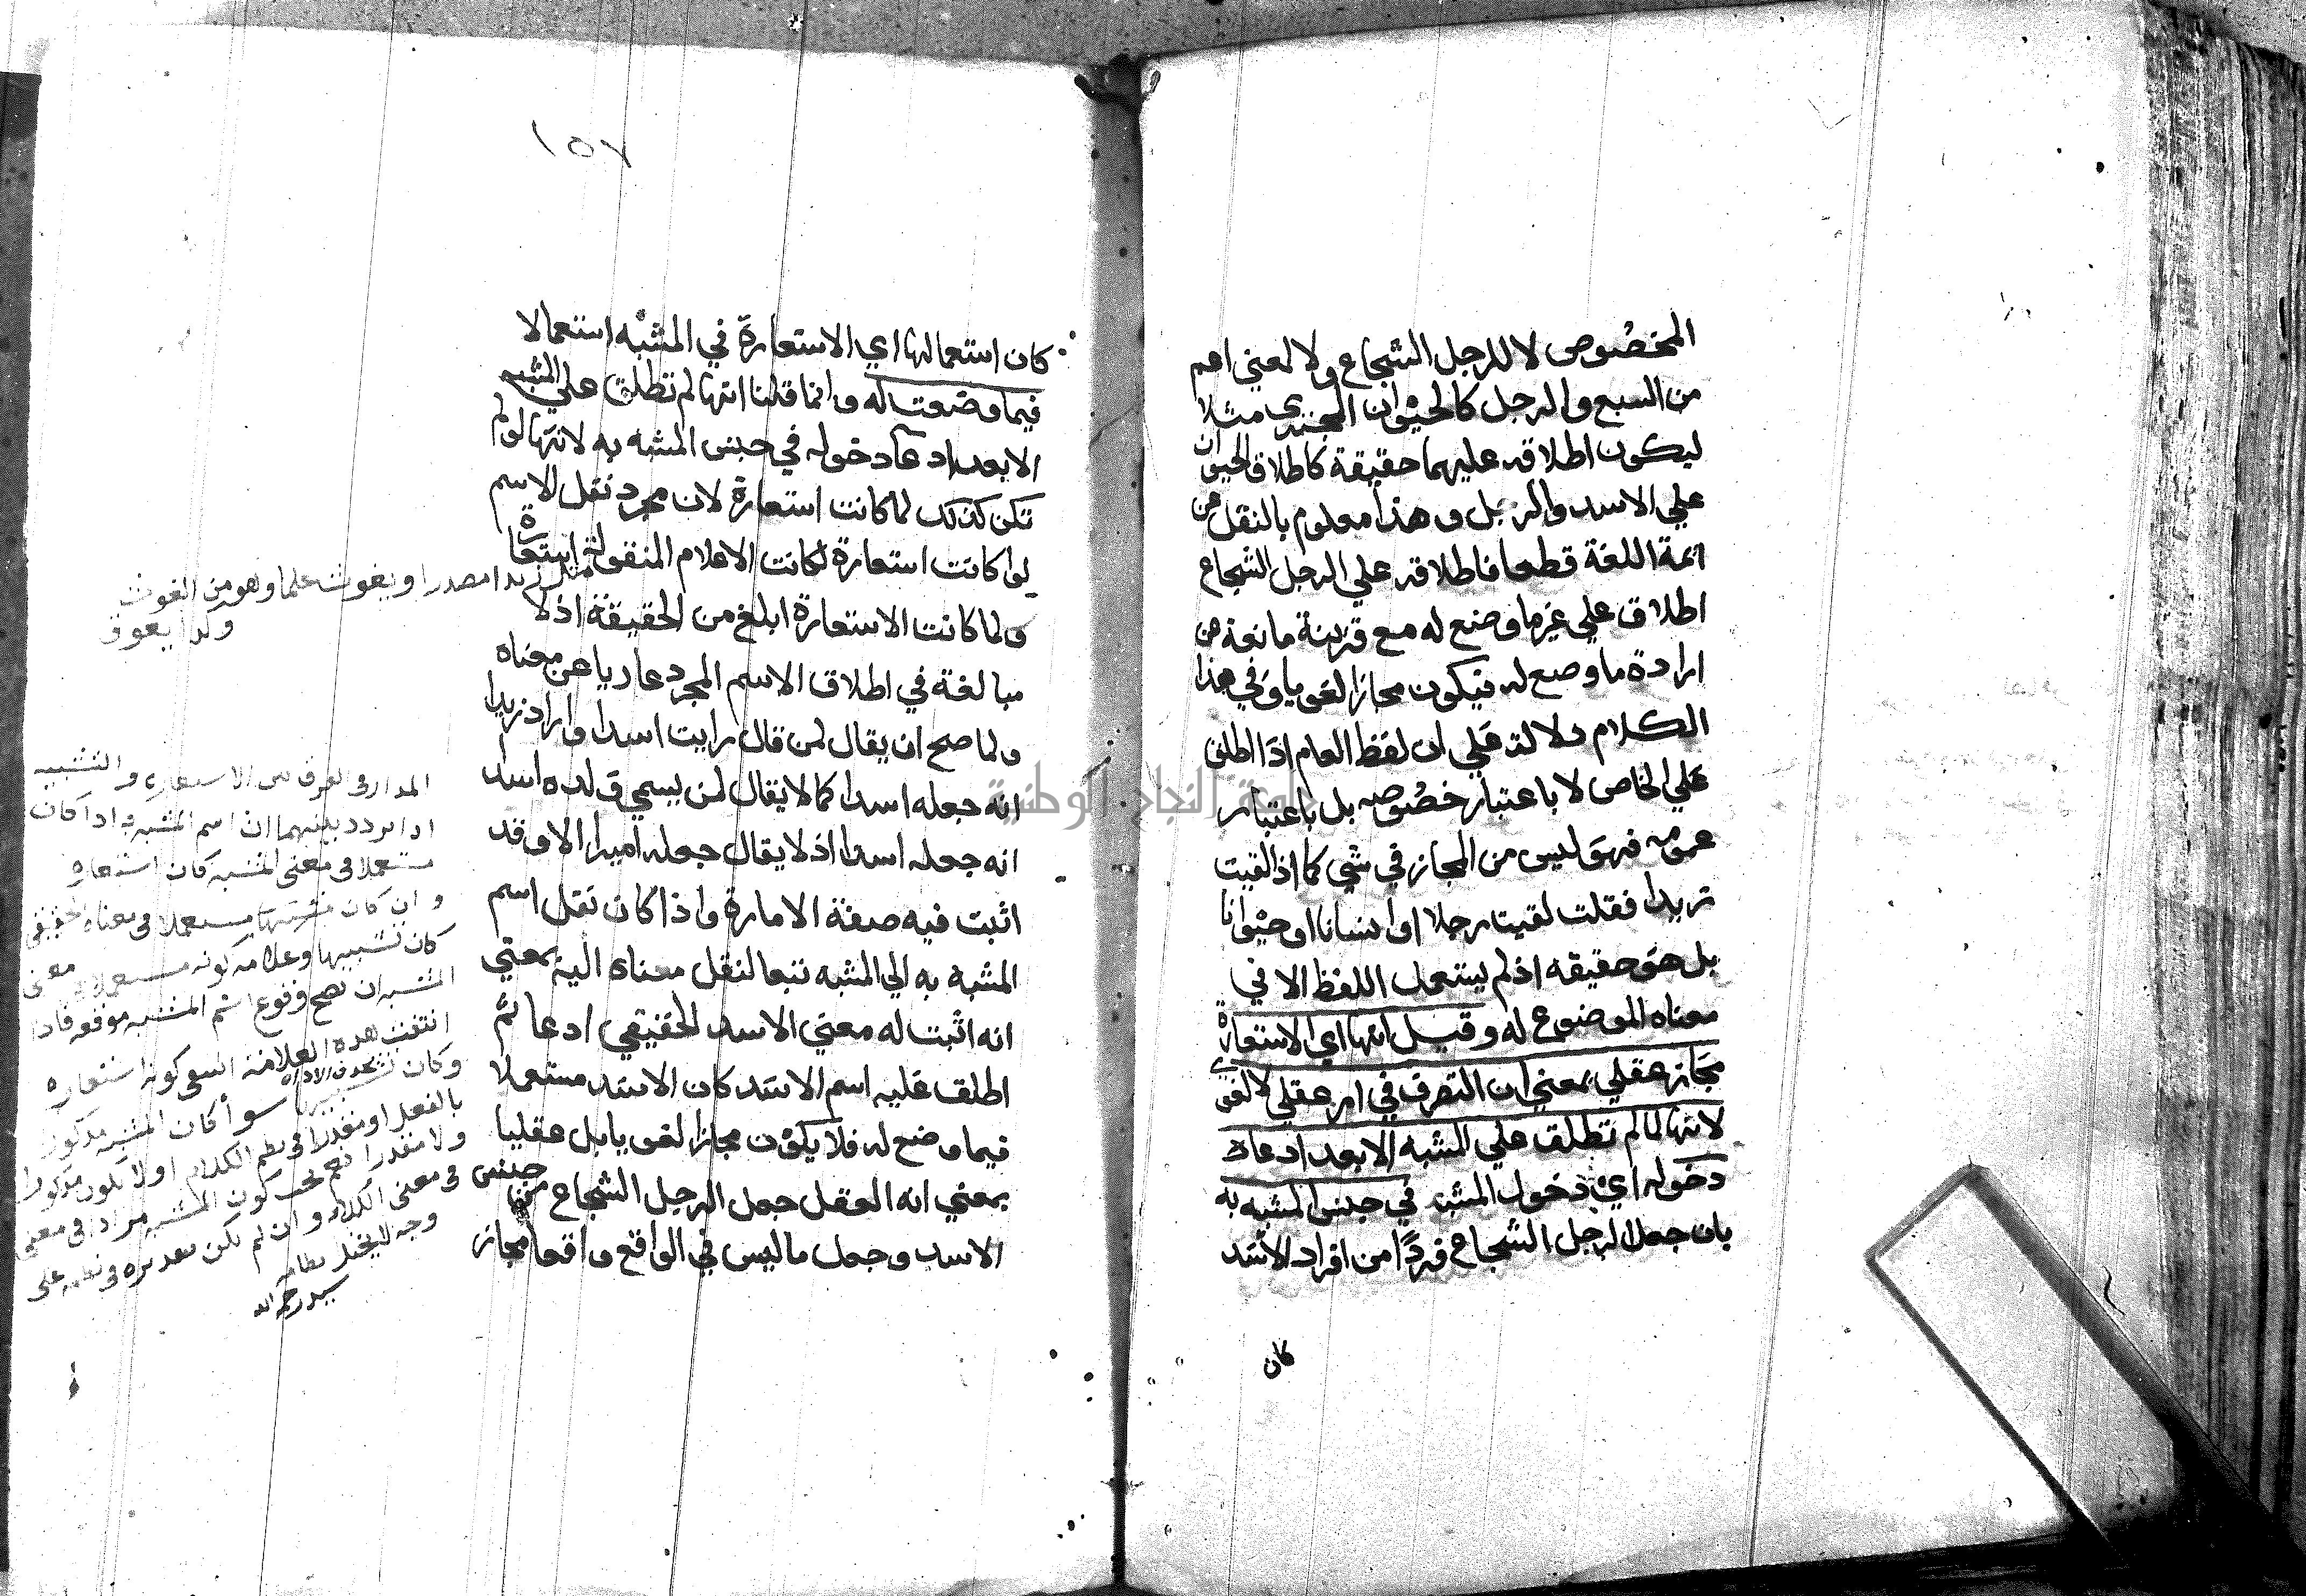 المخصوص لا للرجل الشجاع ولا لمعني اعم
من السبع والرجل كالحيوان المجتري مثلا
ليكون اطلاقه عليهما حقيقة كاطلاق الحيوان
علي الاسد والرجل وهذا معلوم بالنقل عن
ائمة اللغة قطعا فاطلاقه علي الرجل الشجاع
اطلاق علي غير ما وضع له مع قرينة مانعة عن
ارادة ما وضع له فيكون مجازا لغويا وفي هذا
الكلام دلالة علي ان لفظ العام اذا اطلق
علي الخاص لا باعتبار خصوصه بل باعتبار
عمومه فهو ليس من المجاز في شي كما اذا لقيت
زيدا فقلت لقيت رجلا او انسانا او حيوانا
بل هو حقيقه اذ لم يستعمل اللفظ الا في
معناه الموضوع له وقيل انها اي الاستعارة
مجاز عقلي بمعني ان التصرف في امر عقلي لا لغوي
لانها لما لم تطلق علي المشبه الا بعد ادعاء
دخوله اي دخول المشبه في جنس المشبه به
بان جعل الرجل الشجاع فردا من افراد الاسد
كان
١٥٧
كان استعمالها اي الاستعارة في المشبه استعمالا
فيما وضعت له وانما قلنا انها لم تطلق علي المشبه
الا بعد ادعا دخوله في جنس المشبه به لانها لو لم
تكن كذلك لما كانت استعارة لان مجرد نقل الاسم
لو كانت استعارة لكانت الاعلام المنقولة استعارة
ولما كانت الاستعارة ابلغ من الحقيقة اذ لا
مبالغة في اطلاق الاسم المجرد عاريا عن معناه
ولما صح ان يقال لمن قال رايت اسدا واراد زيدا
انه جعله اسدا كما لا يقال لمن يسمي ولده اسدا
انه جعله اسدا اذ لا يقال جعله اميرا الا وقد
اثبت فيه صفة الامارة واذا كان نقل اسم
المشبه به الي المشبه تبعا لنقل معناه اليه بمعني
انه اثبت له معني الاسد الحقيقي ادعا ثم
اطلق عليه اسم الاسد كان الاسد مستعملا
فيما وضع له فلا يكون مجازا لغويا بل عقليا
بمعني انه العقل جعل الرجل الشجاع من جنس
الاسد وجعل ما ليس في الواقع واقعا مجاز
مصدرا ويغوث علما وهو من الغوث
وكذا يعوق
المدار في الفرق بين الاستعاره والتشبيه
اذا تردد بينهما ان اسم المشبه به اذا كان
مستعملا في معنى المشبه كان استعاره
وان كان مستعملا في معناه الحقيقي
كان تشبيها وعلامه كونه مستعملا في معنى
المشبه ان يصح وقوع اسم المشبه موقعه فاذا
انتفت هده العلامة انتفى كونه استعاره
وكان تشبيها بحذف الاداة سوأ كان المشبه مذكورا
بالفعل او مقدرا في نظم الكلام او لا يكون مذكورا
ولا مقدرا كون المشبه مرادا في معنى
في معنى الكلام وان لم يكن تقديره في نظمه على
وجه لا يختل نظامه
سيد رحمه الله
جامعة النجاح الوطنية